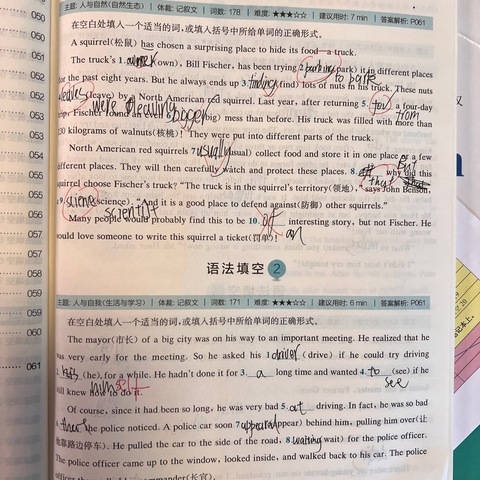 主题: 人与自然(自然生态) | 体裁: 记叙文 | 词数: 178 | 难度: ★★★☆☆ | 建议用时: 7 min | 答案解析: P061
在空白处填入一个适当的词,或填入括号中所给单词的正确形式。
A squirrel(松鼠) has chosen a surprising place to hide its food—a truck.
The truck's 1. own), Bill Fischer, has been trying 2. parking park) it in different places
to park
for the past eight years. But he always ends up 3. finding find) lots of nuts in his truck. These nuts
leave) by a North American red squirrel. Last year, after returning 5. a four-day
were from
Fischer found an even 6. bigger big) mess than before. His truck was filled with more than
kilograms of walnuts(核桃)! They were put into different parts of the truck.
North American red squirrels 7. usually usual) collect food and store it in one place or a few
different places. They will then carefully watch and protect these places. 8. why did this
But
squirrel choose Fischer's truck? "The truck is in the squirrel's territory(领地)," says John Benson,
9. science science). "And it is a good place to defend against(防御) other squirrels."
scientist
Many people would probably find this to be 10. interesting story, but not Fischer. He
an
would love someone to write this squirrel a ticket(罚单)!
语法填空 2
主题: 人与自我(生活与学习) | 体裁: 记叙文 | 词数: 171 | 难度: ★★★☆☆ | 建议用时: 6 min | 答案解析: P061
在空白处填入一个适当的词,或填入括号中所给单词的正确形式。
The mayor(市长) of a big city was on his way to an important meeting. He realized that he
was very early for the meeting. So he asked his 1. driver (drive) if he could try driving
2. (he), for a while. He hadn't done it for 3. a long time and wanted 4. to (see) if he
himself see
still knew how to do it.
Of course, since it had been so long, he was very bad 5. at driving. In fact, he was so bad
6. the police noticed. A police car soon 7. appeared appear) behind him, pulling him over(让
靠路边停车). He pulled the car to the side of the road, 8. waiting wait) for the police officer.
The police officer came up to the window, looked inside, and walked back to his car. The police
050
051
052
052
053
054
055
055
056
058
059
060
061